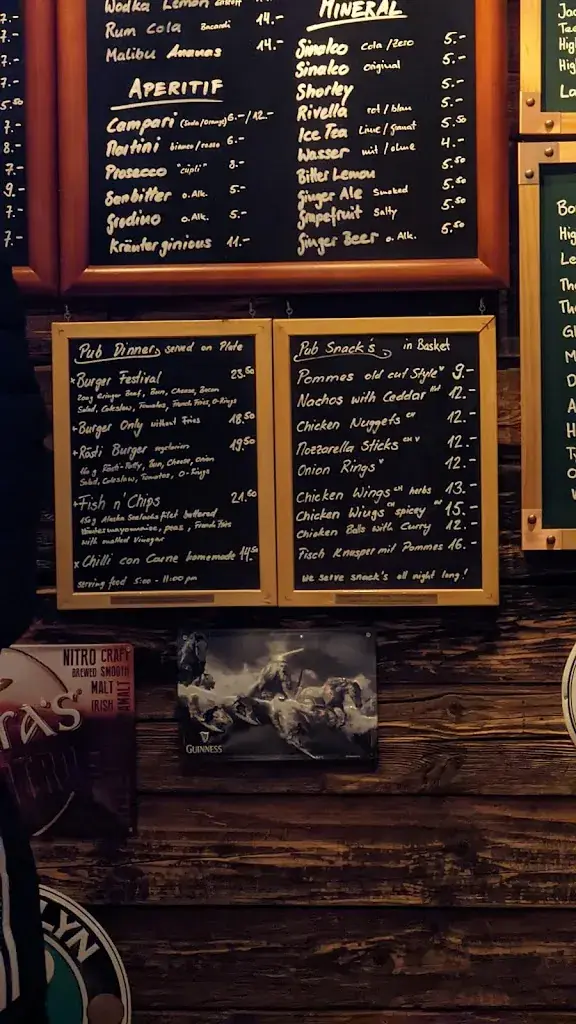 Wodka Lemon
Rum Cola Bacardi 14.-
Malibu Ananas 14.-
APERITIF
Campari (Soda/Orange) 6.-/12.-
Martini bianco/rosso 6.-
Prosecco "cüpli" 8.-
Sanbitter o.Alk. 5.-
Grodino o.Alk. 5.-
Kräuterginious 11.-
MINERAL
Sinalco Cola/Zero 5.-
Sinalco original 5.-
Shorley 5.-
Rivella rot/blau 5.-
Ice Tea Lime/Granat 5.50
Wasser mit/ohne 4.-
Bitter Lemon 5.50
Ginger Ale Smoked 5.50
Grapefruit Salty 5.50
Ginger Beer o.Alk. 6.50
Pub Dinner, served on Plate
Burger Festival 23.50
200g Beef, Bun, Cheese, Bacon
Salad, Coleslaw, Tomatoes, French Fries, O-Rings
Burger Only without Fries 18.50
Rösti Burger vegetarian 19.50
Rösti-Patty, Bun, Cheese, onion
Salad, Coleslaw, Tomatoes, O-Rings
Fish n' Chips 21.50
Alaska Seelachsfilet battered
mayonnaise, peas, French Fries
with malted Vinegar
x Chilli con Carne homemade 14.50
serving food 5:00 - 11:00 pm
Pub Snack's in Basket
Pommes old cut Style v 9.-
Nachos with Ceddar 12.-
Chicken Nuggets CH 12.-
Mozzarella Sticks 12.-
Onion Rings v 12.-
Chicken Wings CH herbs 13.-
Chicken Wings CH spicey 15.-
Chicken Balls with Curry 12.-
Fisch Knusper mit Pommes 16.-
we serve snack's all night long!
NITRO CRAFT
BREWED SMOOTH
MALT
IRISH
MALT
ra's
GUINNESS
LYN